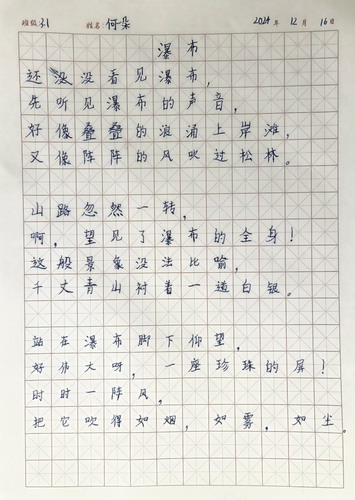 班级 3.1 姓名: 何朵 2024 年 12 月 16 日
瀑布
还没看见瀑布,
先听见瀑布的声音,
好像叠叠的浪涌上岸滩,
又像阵阵的风吹过松林。
山路忽然一转,
啊,望见了瀑布的全身!
这般景象没法比喻,
千丈青山衬着一道白银。
站在瀑布脚下仰望,
好伟大呀,一座珍珠的屏!
时时一阵风,
把它吹得如烟,如雾,如尘。